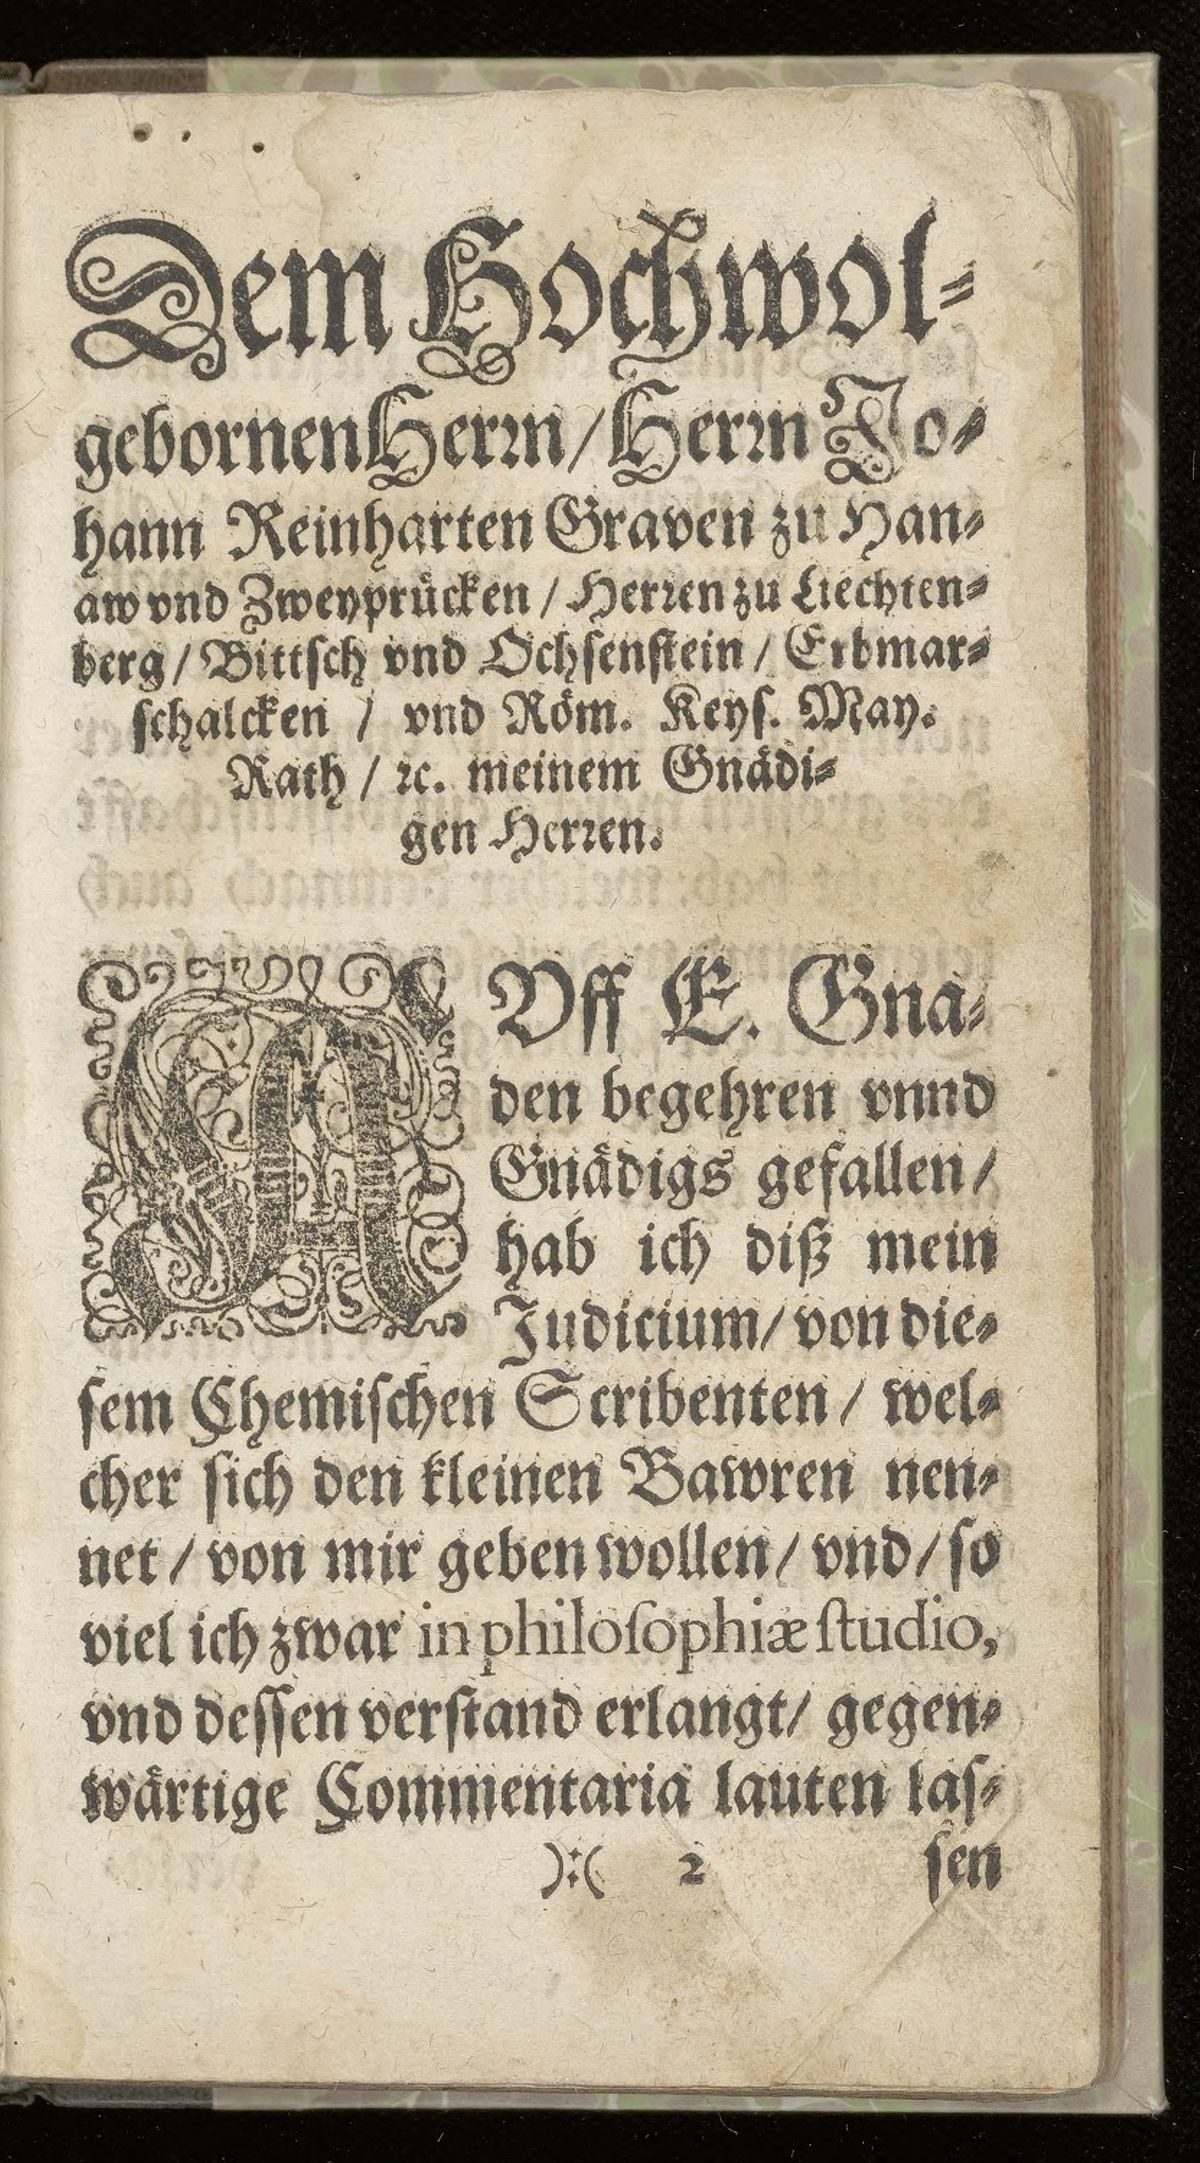 Dem Hochwol-
gebornen Herꝛn / Herꝛn Jo-
hann Reinharten Graven zu Han-
aw vnd Zweyprücken / Herꝛen zu Liechten-
berg / Bittsch vnd Ochsenstein / Erbmar-
schalcken / vnd Röm. Keys. May.
Rath / ꝛc. meinem Gnädi-
gen Herꝛen.
AVff E. Gna-
den begehren vnnd
Gnädigs gefallen /
hab ich diß mein
Judicium / von die-
sem Chemischen Scribenten / wel-
cher sich den kleinen Bawren nen-
net / von mir geben wollen / vnd / so
viel ich zwar in philoſophiæ ſtudio,
vnd dessen verstand erlangt / gegen-
wärtige Commentaria lauten las-
):( 2 sen